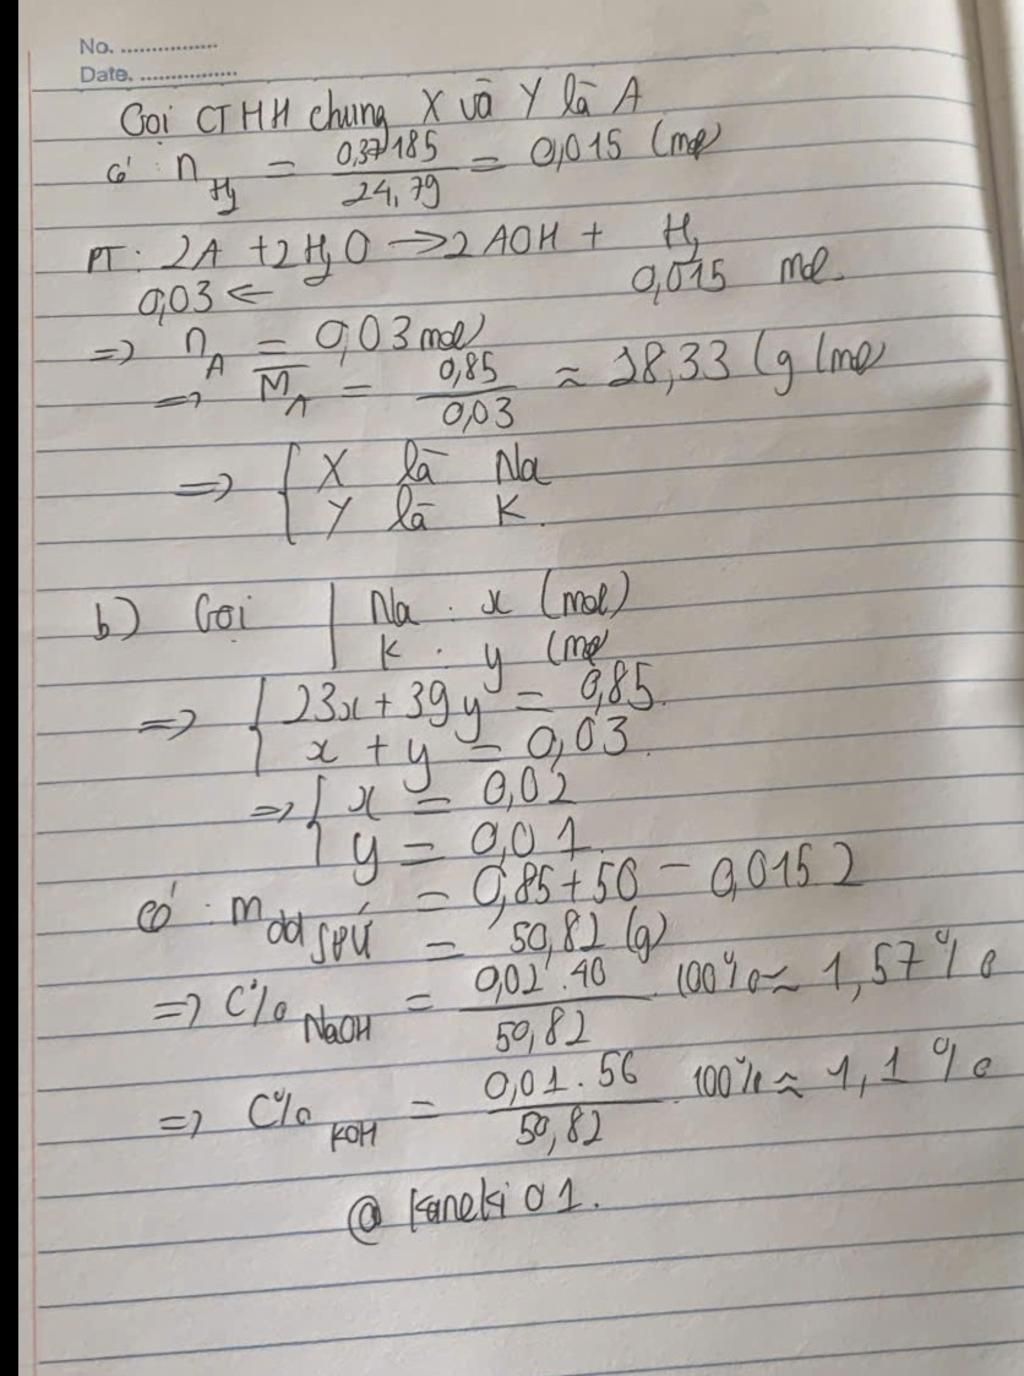 No. ................
Date. ................
Gọi CTHH chung X và Y là A
Có: n H2 = 0,37185 / 24,79 = 0,015 (mol)
PT: 2A + 2H2O → 2AOH + H2
0,03 ← 0,015 mol.
=> nA = 0,03 mol
=> M̅A = 0,85 / 0,03 ≈ 28,33 (g/mol)
=> { X là Na
Y là K.
b) Gọi | Na : x (mol)
K : y (mol)
=> { 23x + 39y = 0,85.
x + y = 0,03.
=> { x = 0,02
y = 0,01.
Có: m dd spứ = 0,85 + 50 - 0,015 2
= 50,82 (g)
=> C% NaOH = 0,02 . 40 / 50,82 . 100% ≈ 1,57%
=> C% KOH = 0,01 . 56 / 50,82 . 100% ≈ 1,1%
@ Kaneki 01.